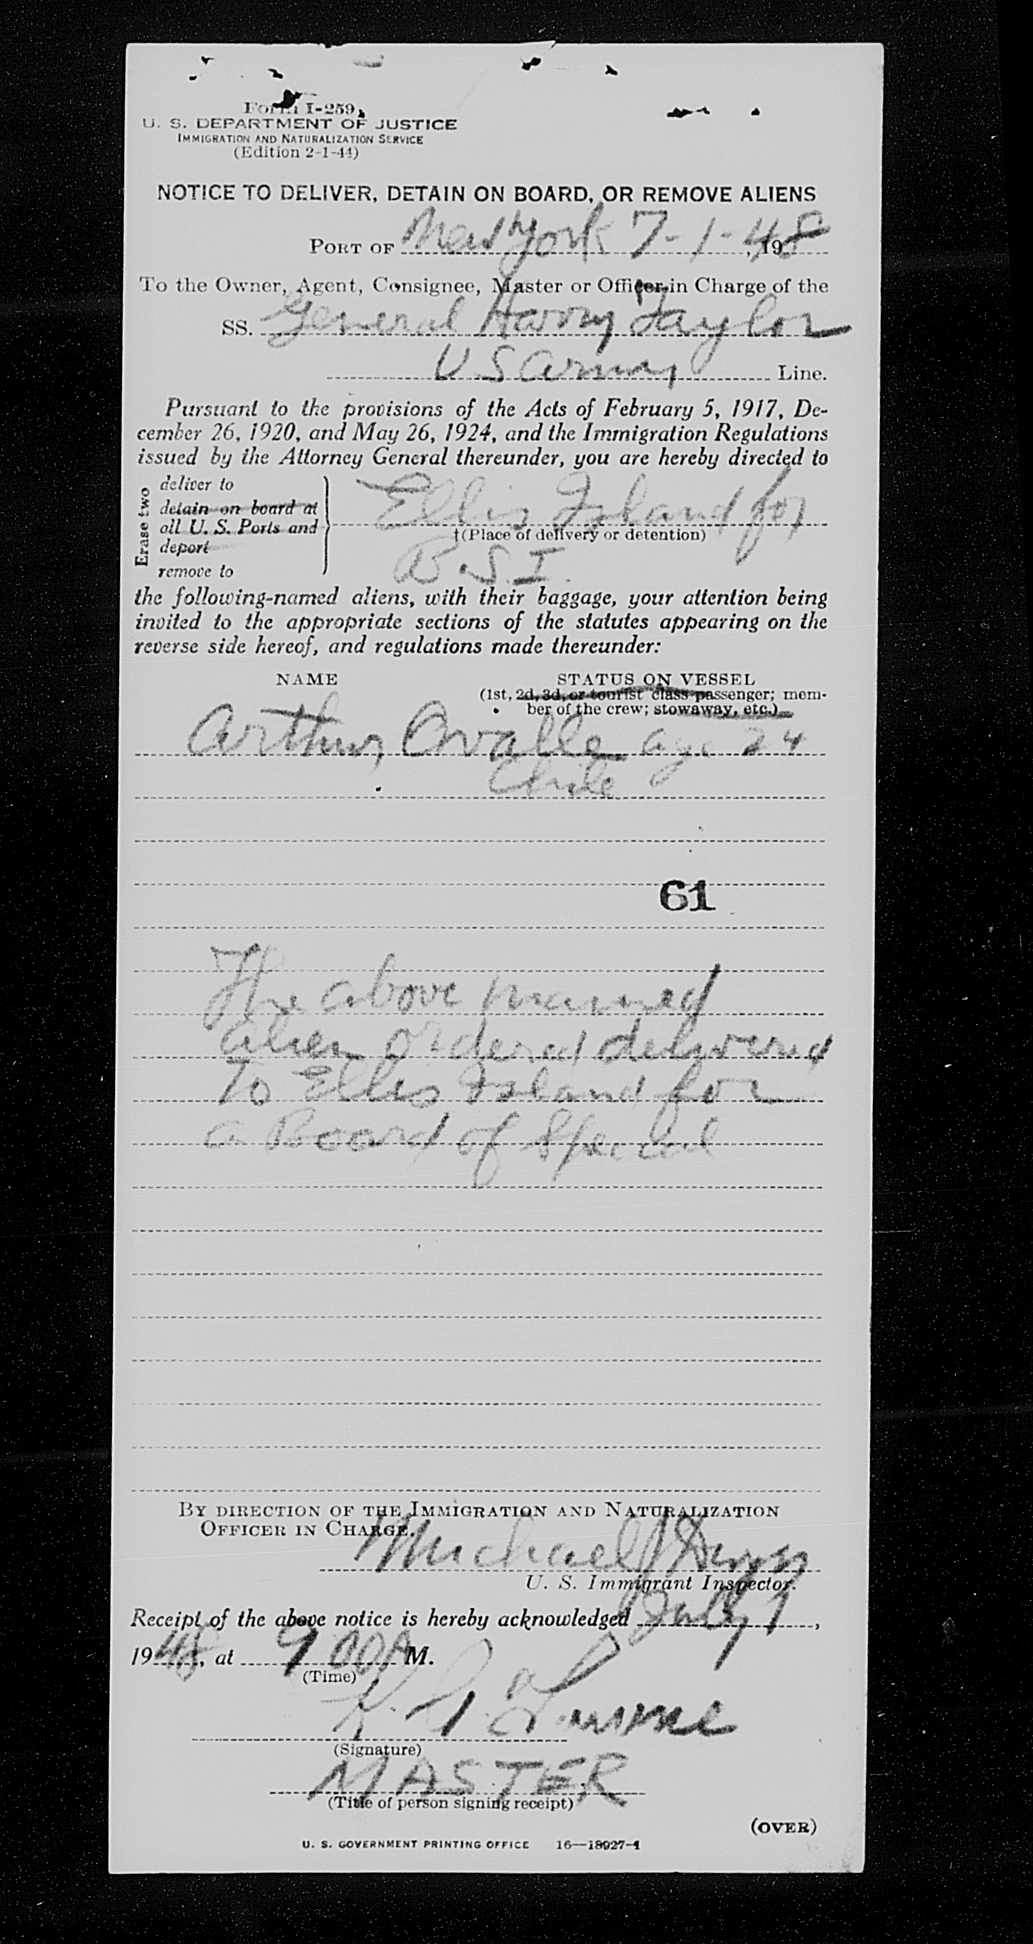 Form I-259
U. S. DEPARTMENT OF JUSTICE
IMMIGRATION AND NATURALIZATION SERVICE
(Edition 2-1-44)
NOTICE TO DELIVER, DETAIN ON BOARD, OR REMOVE ALIENS
PORT OF New York 7-1-48, 19
To the Owner, Agent, Consignee, Master or Officer in Charge of the
SS. General Harry Taylor
US Army Line.
Pursuant to the provisions of the Acts of February 5, 1917, De-
cember 26, 1920, and May 26, 1924, and the Immigration Regulations
issued by the Attorney General thereunder, you are hereby directed to
Erase two
deliver to
detain on board at
all U. S. Ports and
deport
remove to
Ellis Island for
†(Place of delivery or detention)
B.S.I.
the following-named aliens, with their baggage, your attention being
invited to the appropriate sections of the statutes appearing on the
reverse side hereof, and regulations made thereunder:
NAME STATUS ON VESSEL
(1st, 2d, 3d, or tourist class passenger; mem-
ber of the crew; stowaway, etc.)
Arthur, Ovalle age 24
Chile
61
The above named
alien ordered delivered
To Ellis Island for
a Board of Special
BY DIRECTION OF THE IMMIGRATION AND NATURALIZATION
OFFICER IN CHARGE.
Michael J
U. S. Immigrant Inspector.
Receipt of the above notice is hereby acknowledged July 1,
1948, at 9 00A M.
(Time)
(Signature)
MASTER
(Title of person signing receipt)
(OVER)
U. S. GOVERNMENT PRINTING OFFICE 16—18927-1